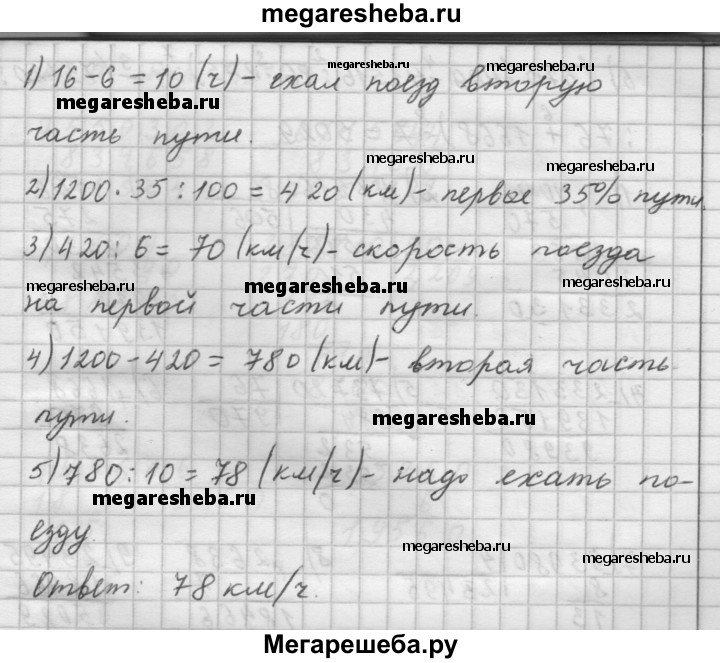 megaresheba.ru
1) 16-6=10 (ч)- ехал поезд вторую
megaresheba.ru
megaresheba.ru
часть пути.
megaresheba.ru
megaresheba.ru
2) 1200·35:100=420 (км)- первые 35% пути.
3) 420:6=70 (км/ч)- скорость поезда
megaresheba.ru
megaresheba.ru
megaresheba.ru
на первой части пути.
4) 1200-420=780 (км)- вторая часть
пути.
megaresheba.ru
5) 780:10=78 (км/ч)- надо ехать по-
megaresheba.ru
езду.
megaresheba.ru
megaresheba.ru
Ответ: 78 км/ч.
Мегарешеба.ру